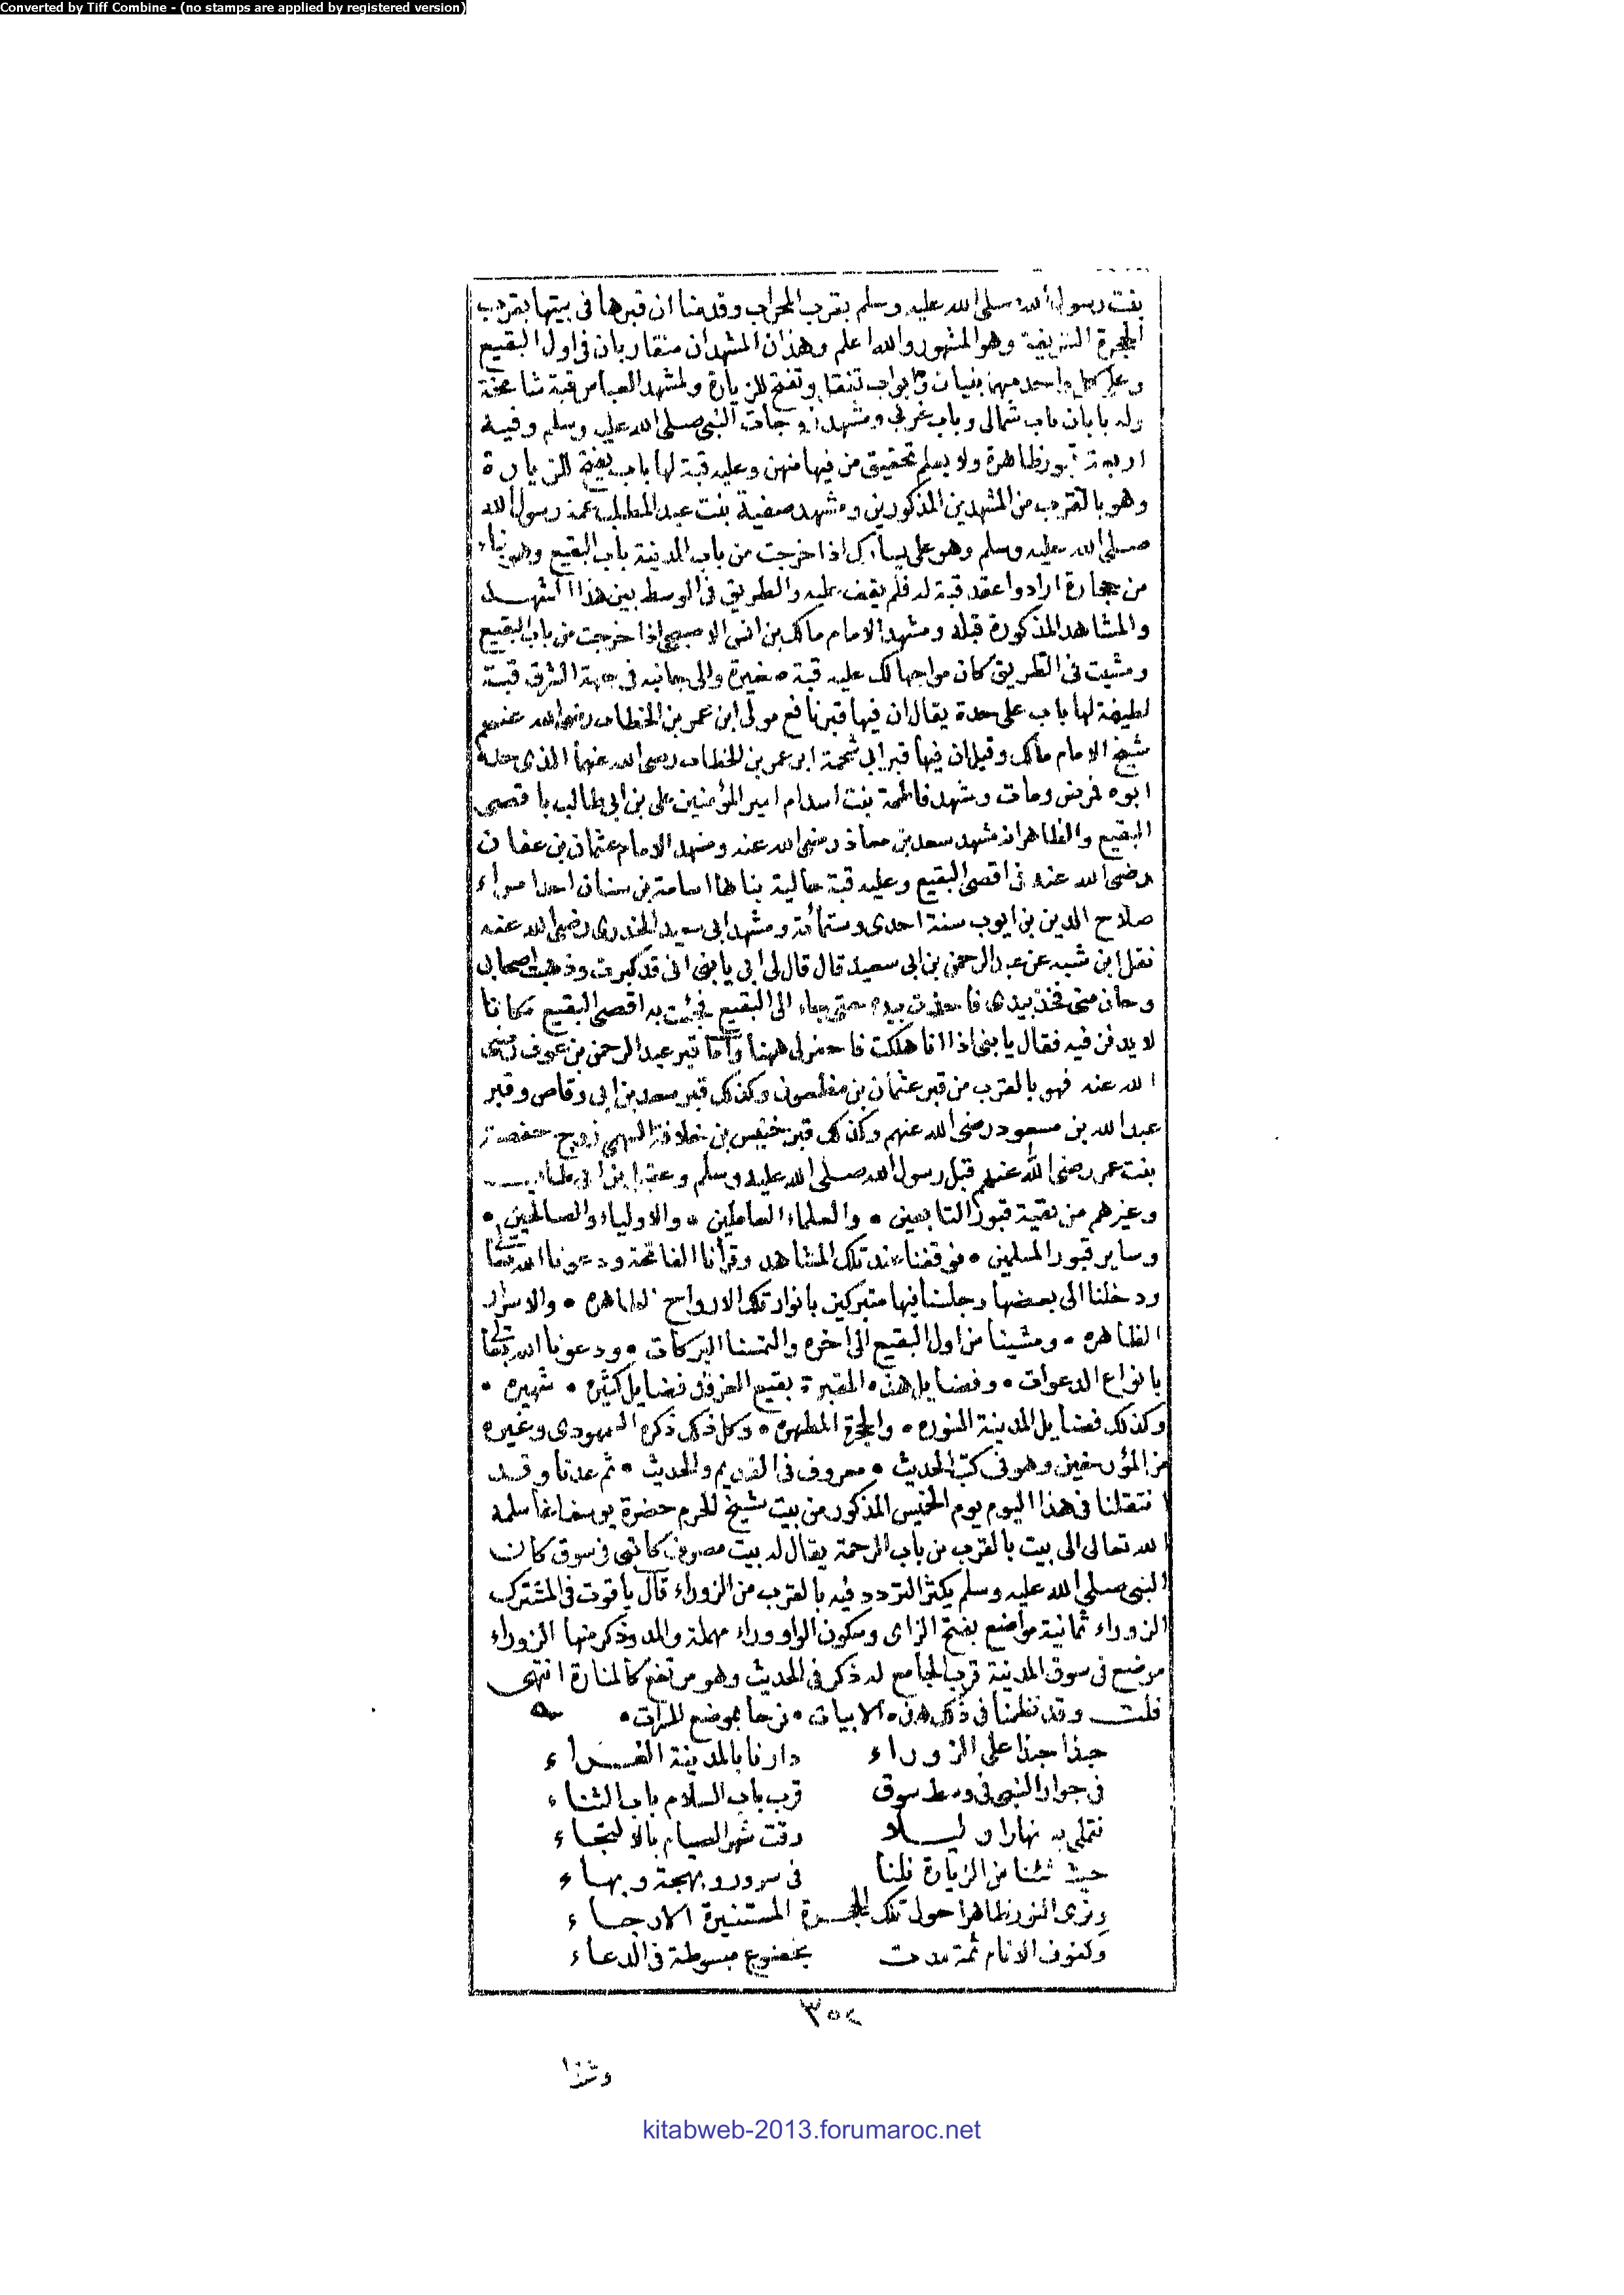 Converted by Tiff Combine - (no stamps are applied by registered version)
بنت رسول الله صلى الله عليه وسلم بقرب المحراب وقدمنا ان قبرها فى بيتها بقرب
الحجرة الشريفة وهو المشهور والله اعلم وهذان المشهدان متقاربان فى اول البقيع
وعلى كل واحد منهما بنيان وابواب تقفل وتفتح للزيارة ولمشهد العباس قبة شامخة
وله بابان باب شمالى وباب غربى ومشهد زوجات النبى صلى الله عليه وسلم وفيه
اربعة قبور ظاهرة ولا يعلم تحقيق من فيها منهن وعليه قبة لها باب يفتح للزيارة
وهو بالقرب من المشهدين المذكورين ومشهد صفية بنت عبد المطلب عمة رسول الله
صلى الله عليه وسلم وهو على يسارك اذا خرجت من باب المدينة باب البقيع وهو بناء
من حجارة ارادوا عقد قبة له فلم يقف عليه والطريق فى الوسط بين هذا المشهد
والمشاهد المذكورة قبله ومشهد الامام مالك بن انس الاصبحى اذا خرجت من باب البقيع
ومشيت فى الطريق كان مواجها لك عليه قبة صغيرة والى جانبه فى جهة الشرق قبة
لطيفة لها باب على حدة يقال ان فيها قبر نافع مولى ابن عمر بن الخطاب رضى الله عنهم
شيخ الامام مالك وقيل ان فيها قبر ابى شحمة ابن عمر بن الخطاب رضى الله عنهما الذى جلده
ابوه فمرض ومات ومشهد فاطمة بنت اسد ام امير المؤمنين على بن ابى طالب باقصى
البقيع والظاهر انه مشهد سعد بن معاذ رضى الله عنه ومشهد الامام عثمان بن عفان
رضى الله عنه فى اقصى البقيع وعليه قبة عالية بناها اسامة بن سنان احد امراء
صلاح الدين بن ايوب سنة احدى وستمائة ومشهد ابى سعيد الخدرى رضى الله عنه
نقل ابن شبه عن عبد الرحمن بن ابى سعيد قال قال لى ابى يا بنى انى قد كبرت وذهبت اصحابى
وحان منى فخذ بيدى فاخذت بيده حتى جاء الى البقيع فجئت به اقصى البقيع مكانا
لا يدفن فيه فقال يا بنى اذا انا هلكت فاحفر لى ههنا وأما قبر عبد الرحمن بن عوف رضى
الله عنه فهو بالقرب من قبر عثمان بن مظعون وكذلك قبر سعد بن ابى وقاص وقبر
عبد الله بن مسعود رضى الله عنهم وكذلك قبر خنيس بن حذافة السهمى زوج حفصة
بنت عمر رضى الله عنهم قبل رسول الله صلى الله عليه وسلم
وغيرهم من بقية قبور التابعين • والعلماء العاملين • والاولياء والصالحين •
وساير قبور المسلمين • فوقفنا عند تلك المشاهد وقرأنا الفاتحة ودعونا الله تعالى
ودخلنا الى بعضها وجلسنا فيها متبركين بانوار تلك الارواح الطاهره • والاسرار
الظاهره • ومشينا من اول البقيع الى اخره والتمسنا البركات • ودعونا الله تعالى
بانواع الدعوات • وفضايل هذه المقبرة بقيع الغرقد فضايل كثيره • شهيره •
وكذلك فضايل المدينة المنوره • والحجرة المطهره • وكل ذلك ذكره السمهودى وغيره
من المؤرخين وهو فى كتب الحديث • معروف فى القديم والحديث • ثم عدنا وقد
انتقلنا فى هذا اليوم يوم الخميس المذكور من بيت شيخ الحرم حضرة يوسف اغا سلمه
الله تعالى الى بيت بالقرب من باب الرحمة يقال له بيت مصرف كاتبى فى سوق كان
النبى صلى الله عليه وسلم يكثر التردد فيه بالقرب من الزوراء قال ياقوت فى المشترك
الزوراء ثمانية مواضع بفتح الزاى وسكون الواو وراء مهملة والمد وذكر منها الزوراء
موضع فى سوق المدينة قرب الجامع له ذكر فى الحديث وهو مرتفع كالمنارة انتهى
قلت وقد نظمنا فى ذكر هذه الابيات • فرحا بموضع المسرات •
حبذا حبذا على الزوراء دارنا بالمدينة الغراء
فى جوار النبى فى وسط سوق قرب باب السلام باب الثناء
نتملى به نهارا وليلا وقت شهر الصيام بالالتجاء
حيث شئنا من الزيارة نلنا فى سرور وبهجة وبهاء
ونرى النور ظاهرا حول تلك الحجرة المستنيرة الارجاء
وكفوف الانام ثمة مدت بخضوع مبسوطة فى الدعاء
٣٥٤
وشذا
kitabweb-2013.forumaroc.net